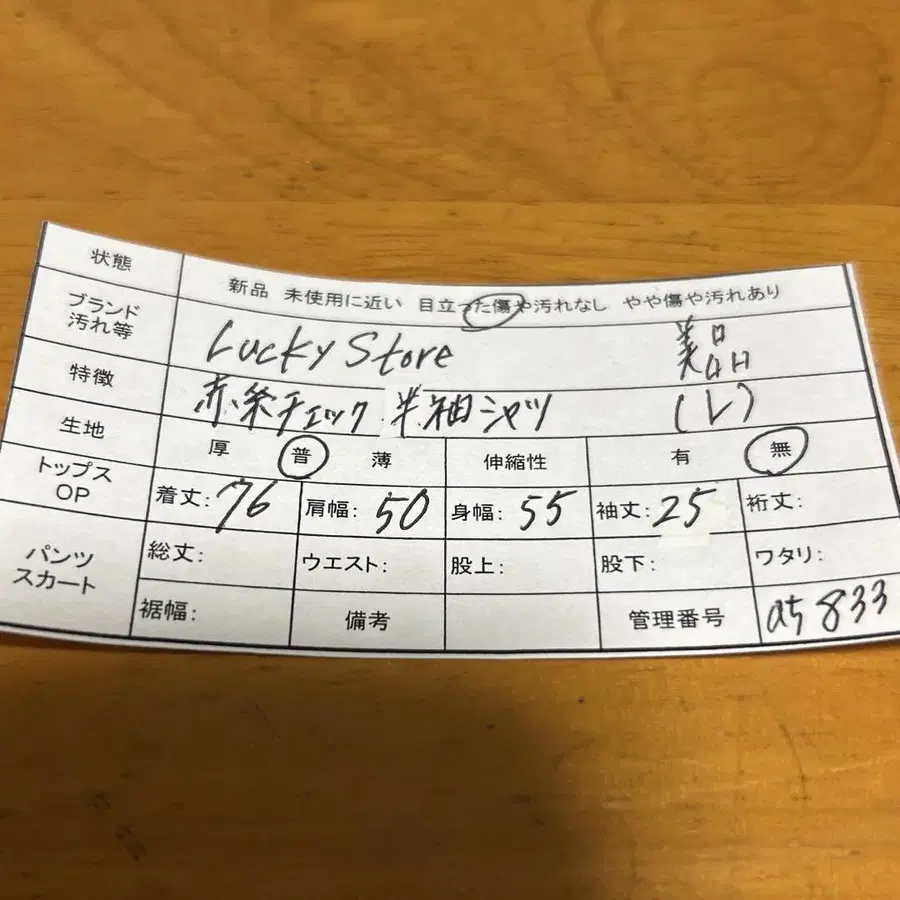 状態 新品 未使用に近い 目立った傷や汚れなし やや傷や汚れあり
ブランド 汚れ等 Lucky Store 美品
特徴 赤糸チェック 半袖シャツ (L)
生地 厚 普 薄 伸縮性 有 無
トップス OP 着丈:76 肩幅:50 身幅:55 袖丈:25 裄丈:
パンツ スカート 総丈: ウエスト: 股上: 股下: ワタリ:
裾幅: 備考 管理番号 at833